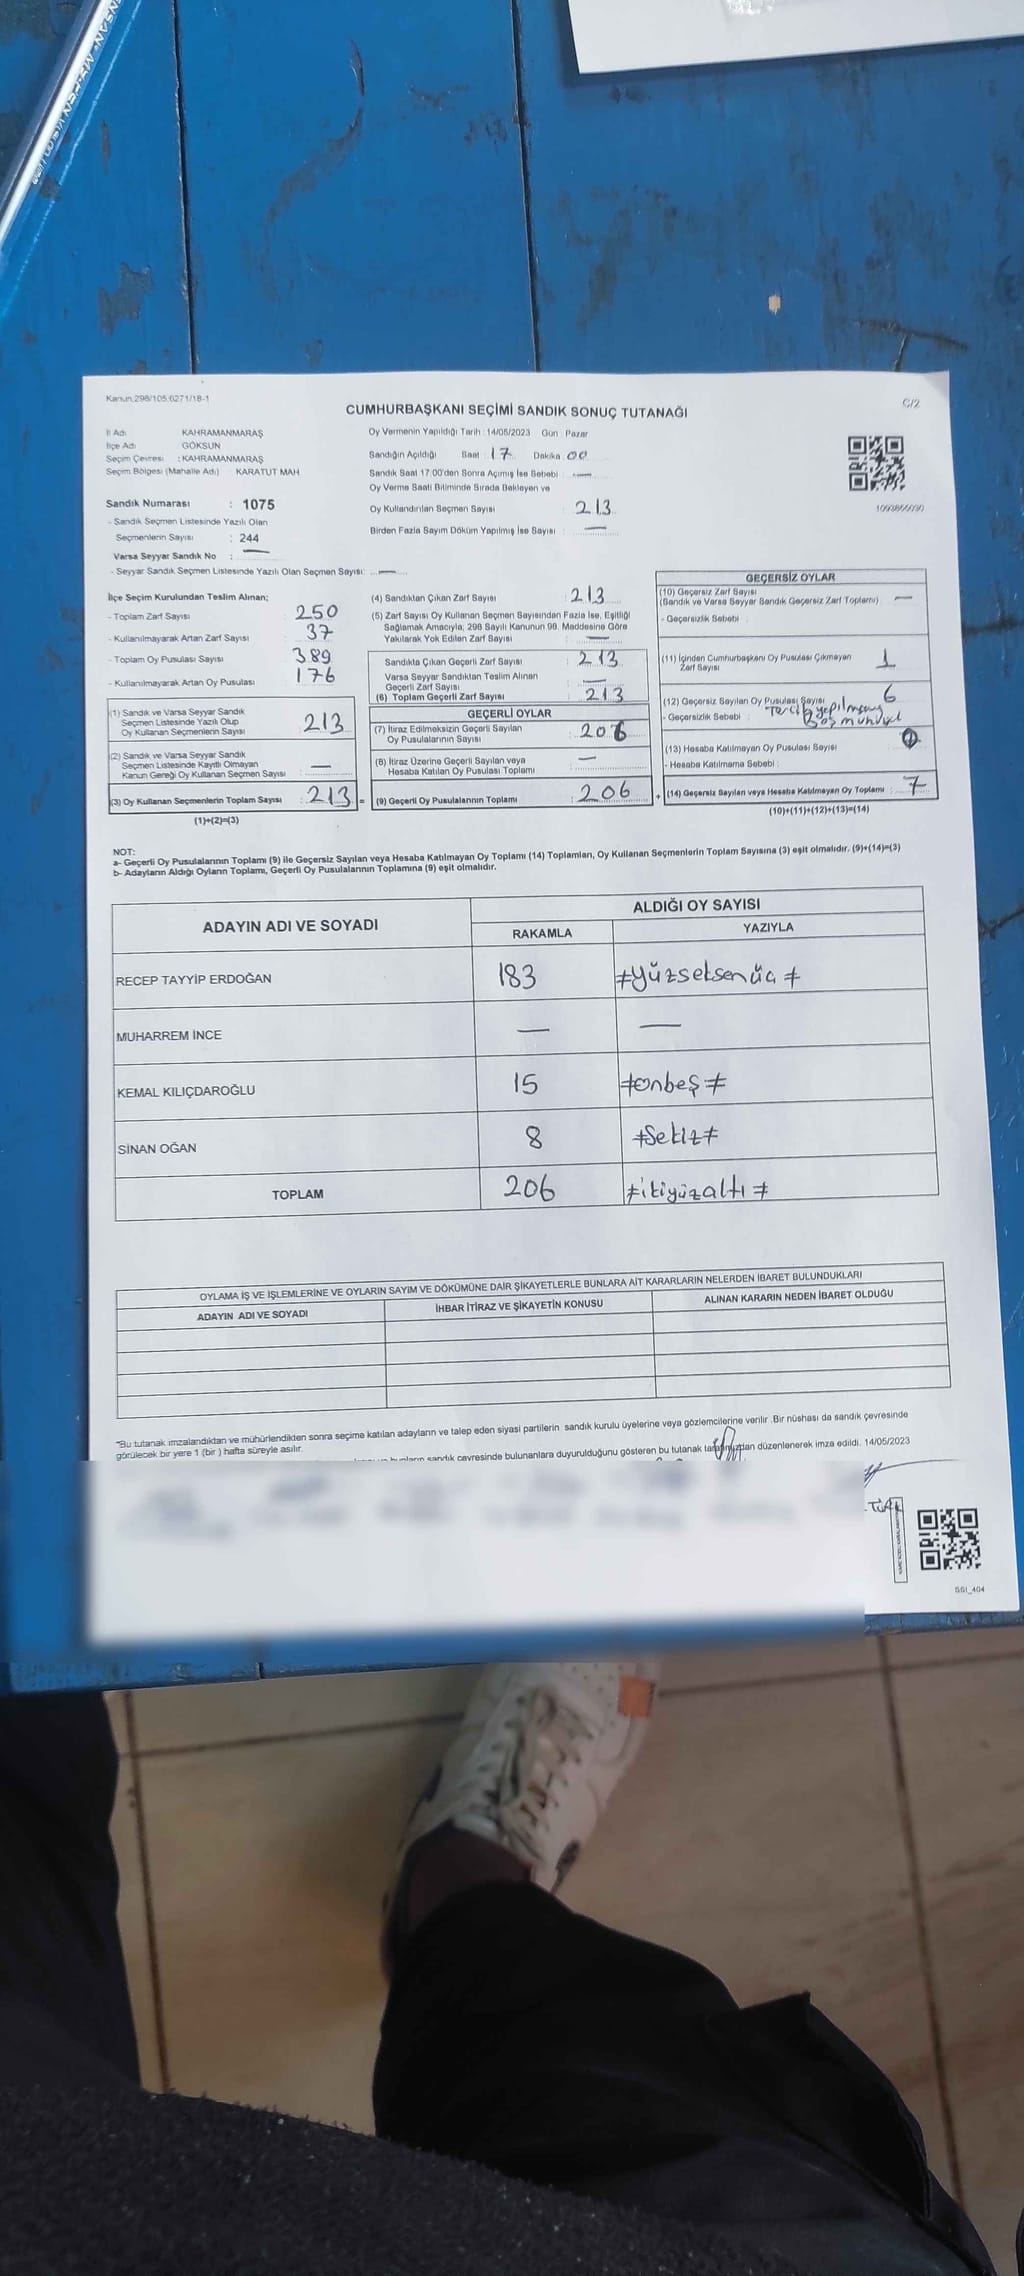 Kanun,298/105,6271/18-1
C/2
CUMHURBAŞKANI SEÇİMİ SANDIK SONUÇ TUTANAĞI
İl Adı KAHRAMANMARAŞ
İlçe Adı GÖKSUN
Seçim Çevresi : KAHRAMANMARAŞ
Seçim Bölgesi (Mahalle Adı) KARATUT MAH.
Sandık Numarası : 1075
- Sandık Seçmen Listesinde Yazılı Olan
Seçmenlerin Sayısı : 244
Varsa Seyyar Sandık No : —
- Seyyar Sandık Seçmen Listesinde Yazılı Olan Seçmen Sayısı: —
Oy Vermenin Yapıldığı Tarih : 14/05/2023 Gün : Pazar
Sandığın Açıldığı Saat : 17 Dakika 00
Sandık Saat 17:00'den Sonra Açılmış İse Sebebi : —
Oy Verme Saati Bitiminde Sırada Bekleyen ve
Oy Kullandırılan Seçmen Sayısı : 213
Birden Fazla Sayım Döküm Yapılmış İse Sayısı : —
İlçe Seçim Kurulundan Teslim Alınan;
- Toplam Zarf Sayısı : 250
- Kullanılmayarak Artan Zarf Sayısı : 37
- Toplam Oy Pusulası Sayısı : 389
- Kullanılmayarak Artan Oy Pusulası : 176
(1) Sandık ve Varsa Seyyar Sandık
Seçmen Listesinde Yazılı Olup
Oy Kullanan Seçmenlerin Sayısı : 213
(2) Sandık ve Varsa Seyyar Sandık
Seçmen Listesinde Kayıtlı Olmayan
Kanun Gereği Oy Kullanan Seçmen Sayısı : —
(3) Oy Kullanan Seçmenlerin Toplam Sayısı : 213
(1)+(2)=(3)
(4) Sandıktan Çıkan Zarf Sayısı : 213
(5) Zarf Sayısı Oy Kullanan Seçmen Sayısından Fazla İse, Eşitliği
Sağlamak Amacıyla; 298 Sayılı Kanunun 98. Maddesine Göre
Yakılarak Yok Edilen Zarf Sayısı : —
Sandıkta Çıkan Geçerli Zarf Sayısı : 213
Varsa Seyyar Sandıktan Teslim Alınan
Geçerli Zarf Sayısı : —
(6) Toplam Geçerli Zarf Sayısı : 213
GEÇERLİ OYLAR
(7) İtiraz Edilmeksizin Geçerli Sayılan
Oy Pusulalarının Sayısı : 206
(8) İtiraz Üzerine Geçerli Sayılan veya
Hesaba Katılan Oy Pusulası Toplamı : —
(9) Geçerli Oy Pusulalarının Toplamı : 206
GEÇERSİZ OYLAR
(10) Geçersiz Zarf Sayısı
(Sandık ve Varsa Seyyar Sandık Geçersiz Zarf Toplamı) : —
- Geçersizlik Sebebi :
(11) İçinden Cumhurbaşkanı Oy Pusulası Çıkmayan
Zarf Sayısı 1
(12) Geçersiz Sayılan Oy Pusulası Sayısı 6
- Geçersizlik Sebebi : Tercih yapılmamış
Boş mühür
(13) Hesaba Katılmayan Oy Pusulası Sayısı
- Hesaba Katılmama Sebebi :
(14) Geçersiz Sayılan veya Hesaba Katılmayan Oy Toplamı : 7
(10)+(11)+(12)+(13)=(14)
NOT:
a- Geçerli Oy Pusulalarının Toplamı (9) ile Geçersiz Sayılan veya Hesaba Katılmayan Oy Toplamı (14) Toplamları, Oy Kullanan Seçmenlerin Toplam Sayısına (3) eşit olmalıdır. (9)+(14)=(3)
b- Adayların Aldığı Oyların Toplamı, Geçerli Oy Pusulalarının Toplamına (9) eşit olmalıdır.
ADAYIN ADI VE SOYADI
ALDIĞI OY SAYISI
RAKAMLA YAZIYLA
RECEP TAYYİP ERDOĞAN 183 ≠Yüzseksenüç≠
MUHARREM İNCE — —
KEMAL KILIÇDAROĞLU 15 ≠onbeş≠
SİNAN OĞAN 8 ≠Sekiz≠
TOPLAM 206 ≠ikiyüzaltı≠
OYLAMA İŞ VE İŞLEMLERİNE VE OYLARIN SAYIM VE DÖKÜMÜNE DAİR ŞİKAYETLERLE BUNLARA AİT KARARLARIN NELERDEN İBARET BULUNDUKLARI
ADAYIN ADI VE SOYADI İHBAR İTİRAZ VE ŞİKAYETİN KONUSU ALINAN KARARIN NEDEN İBARET OLDUĞU
*Bu tutanak imzalandıktan ve mühürlendikten sonra seçime katılan adayların ve talep eden siyasi partilerin sandık kurulu üyelerine veya gözlemcilerine verilir .Bir nüshası da sandık çevresinde
görülecek bir yere 1 (bir ) hafta süreyle asılır.
sandık çevresinde bulunanlara duyurulduğunu gösteren bu tutanak tarafımızdan düzenlenerek imza edildi. 14/05/2023